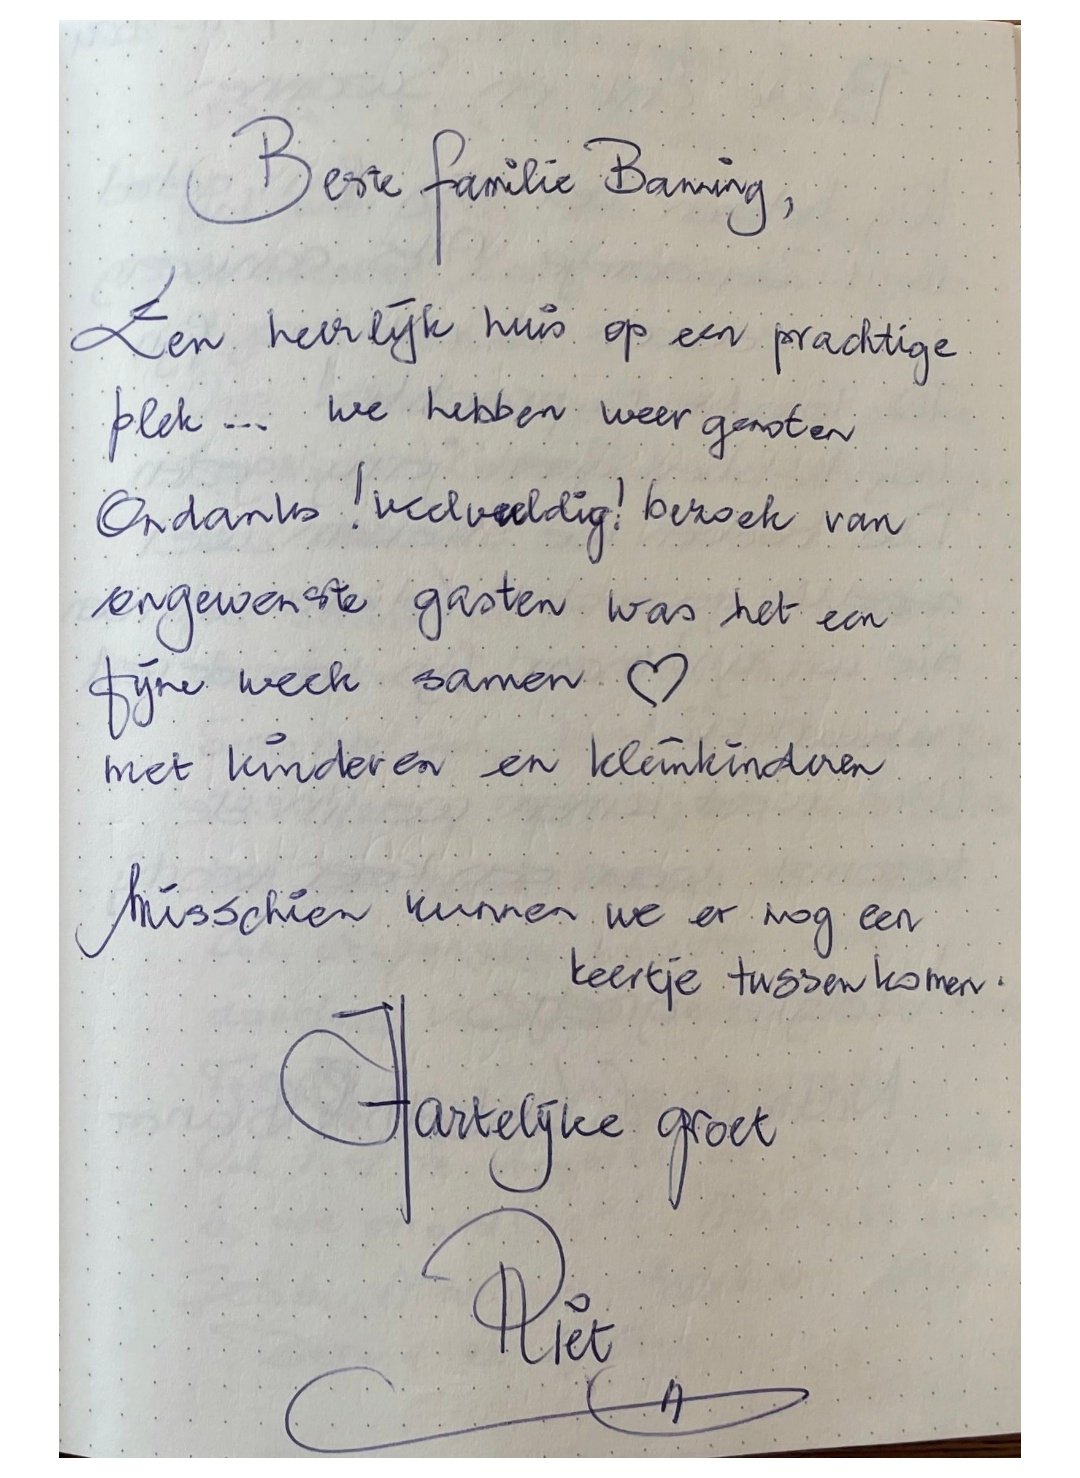 Beste familie Banning,
Een heerlijk huis op een prachtige
plek ... we hebben weer genoten
Ondanks ! veelvuldig! bezoek van
ongewenste gasten was het een
fijne week samen ♡
met kinderen en kleinkinderen
Misschien kunnen we er nog een
keertje tussen komen.
Hartelijke groet
Riet